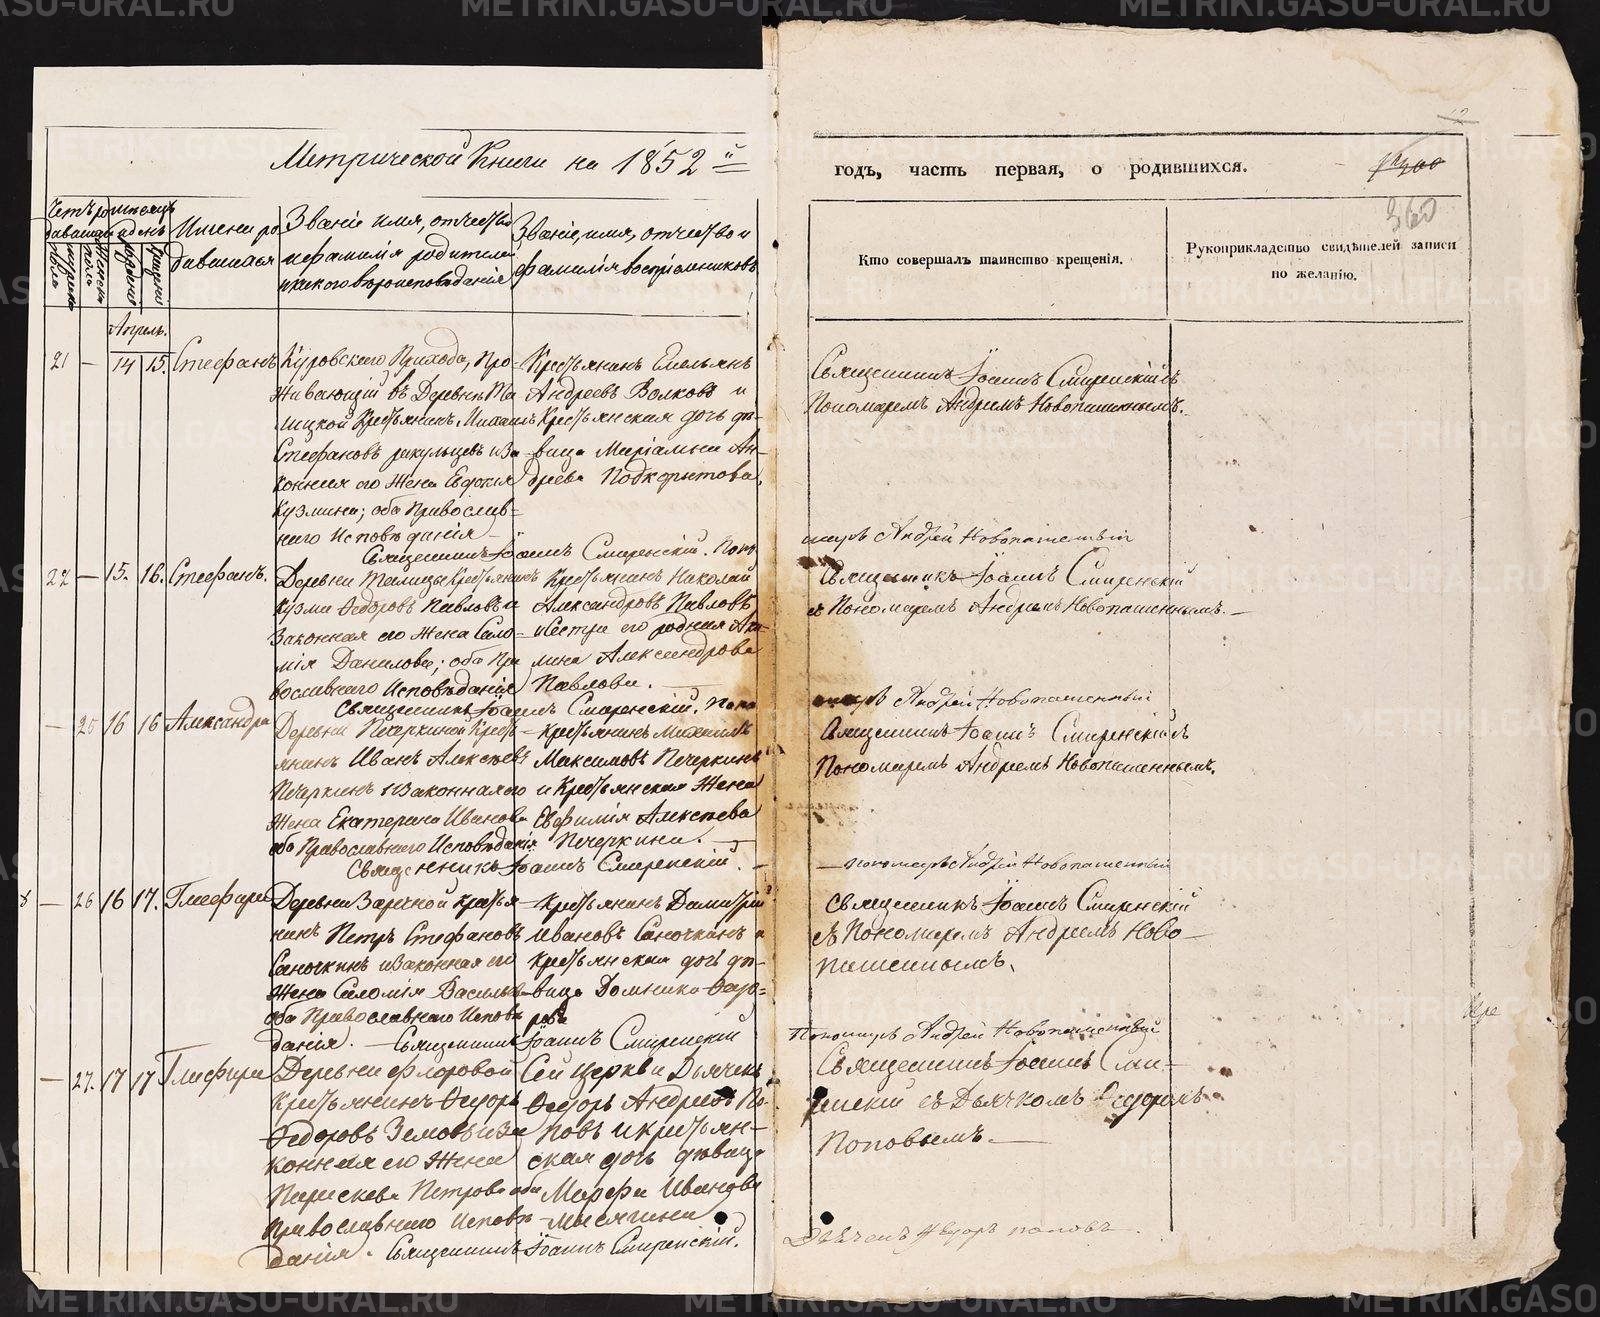 Метрической Книги на 1852й
годъ, часть первая, о родившихся.
360
Счетъ родившихся
Мужеска пола
Женска пола
Мѣсяцъ и день
рожденія
крещенія
Имена родившихся
Званіе имя, отчество
и фамилія родителей
и какого вѣроисповѣданія
Званіе, имя, отчество и
фамилія воспріемниковъ
Кто совершалъ таинство крещенія.
Рукоприкладство свидѣтелей записи
по желанію.
Апрель.
21 — 14 15. Стефанъ
Куровскаго Прихода, Про-
живающій въ Деревнѣ Та
лицкой Крестьянинъ Михаилъ
Стефановъ и За
конная его Жена Евдокія
Кузмина; оба Православ-
наго Исповѣданія —
Крестьянинъ Емельянъ
Андреевъ Волковъ и
Крестьянская дочь дѣ-
вица Маріамна Ан-
дреева Подкорытова.
Священникъ Іоаннъ Смиренскій съ
Пономаремъ Андреемъ Новопашеннымъ.
Священникъ Іоаннъ Смиренскій. Поно
марь Андрей Новопашенный
22 — 15. 16. Стефанъ.
Деревни Талицы Крестьянинъ
Кузма Ѳедоровъ Павловъ и
Законная его Жена Сало-
мія Данилова; оба Пра
вославнаго Исповѣданія
Крестьянинъ Николай
Александровъ Павловъ
и Сестра его родная Аку-
лина Александрова
Павлова. —
Священникъ Іоаннъ Смиренскій
съ Пономаремъ Андреемъ Новопашеннымъ. —
Священникъ Іоаннъ Смиренскій. Поно
марь Андрей Новопашенный
— 25 16 16 Александра
Деревни Печеркиной Кресть-
янинъ Иванъ Алексѣевъ
Печеркинъ и Законная его
Жена Екатерина Иванова
оба Православнаго Исповѣданія
Крестьянинъ Михаилъ
Максимовъ Печеркинъ
и Крестьянская Жена
Евфимія Алексѣева
Печеркина. —
Священникъ Іоаннъ Смиренскій съ
Пономаремъ Андреемъ Новопашеннымъ.
Священникъ Іоаннъ Смиренскій. —
— пономарь Андрей Новопашенный
— 26 16 17. Глафира
Деревни Заречной Крестья
нинъ Петръ Стефановъ
Саночкинъ и Законная его
Жена Саломія Васильева
оба Православнаго Исповѣ
данія. —
Крестьянинъ Димитрій
Ивановъ Саночкинъ и
Крестьянская дочь дѣ-
вица Домника Ѳедо-
рова
Священникъ Іоаннъ Смиренскій
съ Пономаремъ Андреемъ Ново-
пашеннымъ.
Священникъ Іоаннъ Смиренскій
Пономарь Андрей Новопашенный
— 27. 17 17 Глафира
Деревни Флоровой
Крестьянинъ Ѳедоръ
Ѳедоровъ Земовъ и За
конная его Жена
Параскева Петрова оба
Православнаго Исповѣ
данія.
Сей Церкви Дьячекъ
Ѳедоръ Андреевъ По-
повъ и Крестьян-
ская дочь дѣвица
Марфа Иванова
Мысягина
Священникъ Іоаннъ Сми-
ренскій съ Дьячкомъ Ѳедоромъ
Поповымъ. —
Священникъ Іоаннъ Смиренскій.
Дьячекъ Ѳедоръ Поповъ.
METRIKI.GASU-URAL.RU